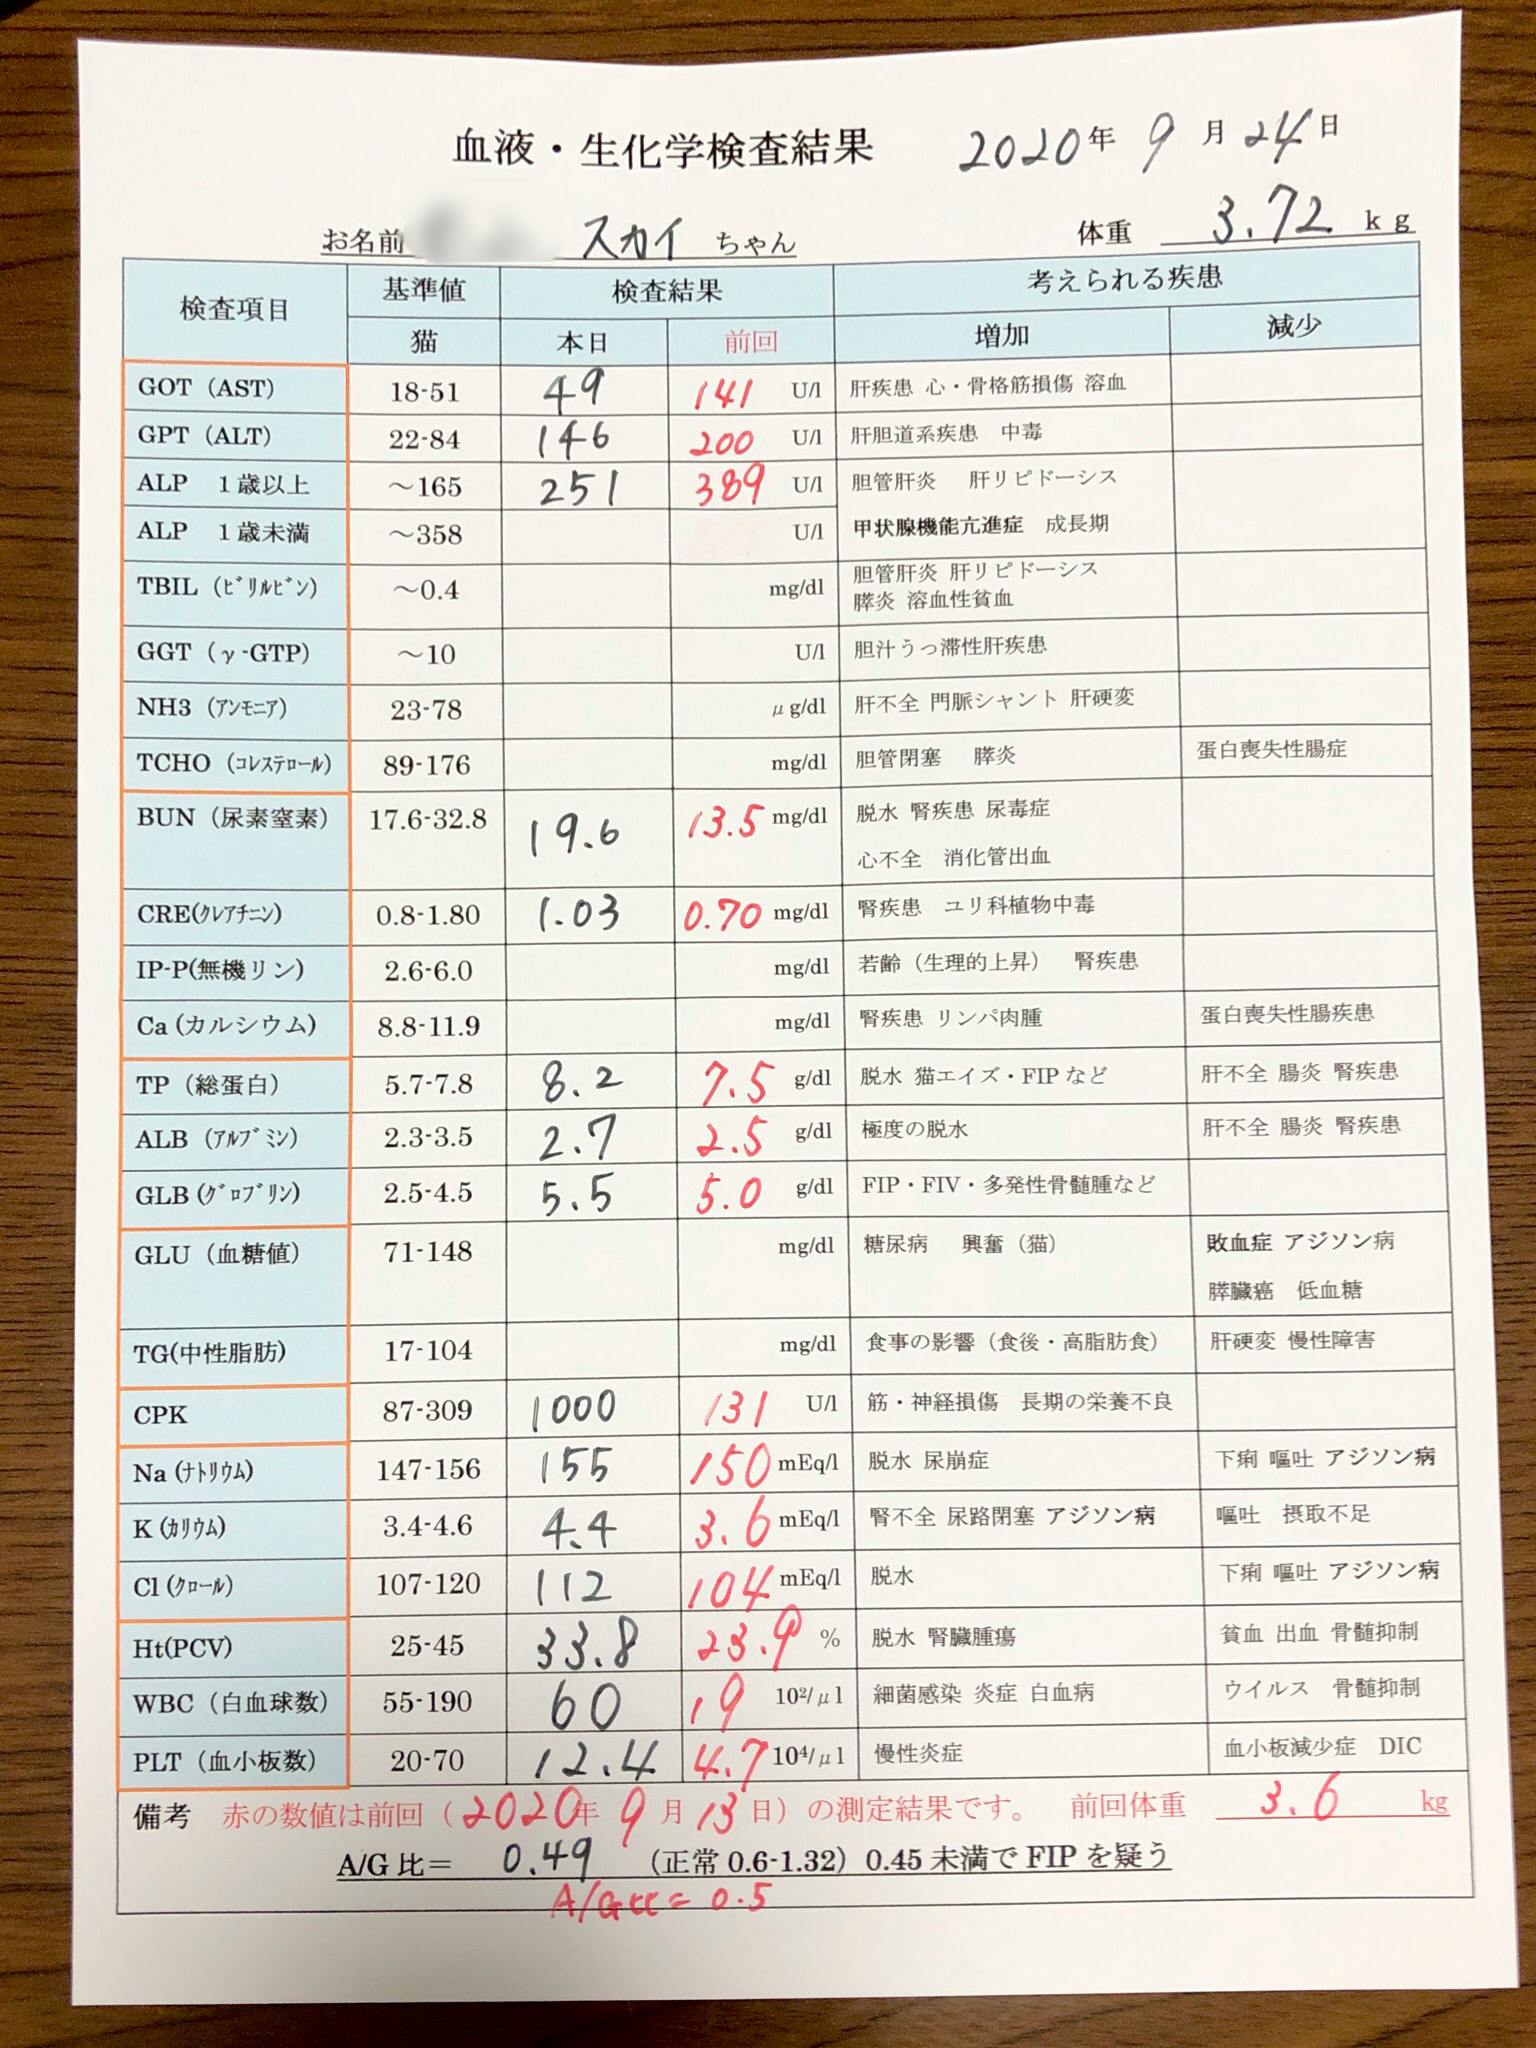 血液・生化学検査結果 2020年 9月 24日
お名前 スカイ ちゃん 体重 3.72 kg
検査項目 基準値 検査結果 考えられる疾患
猫 本日 前回 増加 減少
GOT（AST） 18-51 49 141 U/l 肝疾患 心・骨格筋損傷 溶血
GPT（ALT） 22-84 146 200 U/l 肝胆道系疾患 中毒
ALP 1歳以上 ～165 251 389 U/l 胆管肝炎 肝リピドーシス
ALP 1歳未満 ～358 U/l 甲状腺機能亢進症 成長期
TBIL（ﾋﾞﾘﾙﾋﾞﾝ） ～0.4 mg/dl 胆管肝炎 肝リピドーシス
膵炎 溶血性貧血
GGT（γ-GTP） ～10 U/l 胆汁うっ滞性肝疾患
NH3（ｱﾝﾓﾆｱ） 23-78 μg/dl 肝不全 門脈シャント 肝硬変
TCHO（ｺﾚｽﾃﾛｰﾙ） 89-176 mg/dl 胆管閉塞 膵炎 蛋白喪失性腸症
BUN（尿素窒素） 17.6-32.8 19.6 13.5 mg/dl 脱水 腎疾患 尿毒症
心不全 消化管出血
CRE(ｸﾚｱﾁﾆﾝ) 0.8-1.80 1.03 0.70 mg/dl 腎疾患 ユリ科植物中毒
IP-P(無機リン) 2.6-6.0 mg/dl 若齢（生理的上昇） 腎疾患
Ca(カルシウム) 8.8-11.9 mg/dl 腎疾患 リンパ肉腫 蛋白喪失性腸疾患
TP（総蛋白） 5.7-7.8 8.2 7.5 g/dl 脱水 猫エイズ・FIPなど 肝不全 腸炎 腎疾患
ALB（ｱﾙﾌﾞﾐﾝ） 2.3-3.5 2.7 2.5 g/dl 極度の脱水 肝不全 腸炎 腎疾患
GLB(ｸﾞﾛﾌﾞﾘﾝ) 2.5-4.5 5.5 5.0 g/dl FIP・FIV・多発性骨髄腫など
GLU（血糖値） 71-148 mg/dl 糖尿病 興奮（猫） 敗血症 アジソン病
膵臓癌 低血糖
TG(中性脂肪) 17-104 mg/dl 食事の影響（食後・高脂肪食） 肝硬変 慢性障害
CPK 87-309 1000 131 U/l 筋・神経損傷 長期の栄養不良
Na(ﾅﾄﾘｳﾑ) 147-156 155 150 mEq/l 脱水 尿崩症 下痢 嘔吐 アジソン病
K(ｶﾘｳﾑ) 3.4-4.6 4.4 3.6 mEq/l 腎不全 尿路閉塞 アジソン病 嘔吐 摂取不足
Cl(ｸﾛｰﾙ) 107-120 112 104 mEq/l 脱水 下痢 嘔吐 アジソン病
Ht(PCV) 25-45 33.8 23.9 % 脱水 腎臓腫瘍 貧血 出血 骨髄抑制
WBC（白血球数） 55-190 60 19 10²/μl 細菌感染 炎症 白血病 ウイルス 骨髄抑制
PLT（血小板数） 20-70 12.4 4.7 10⁴/μl 慢性炎症 血小板減少症 DIC
備考 赤の数値は前回（2020年 9月 13日）の測定結果です。 前回体重 3.6 kg
A/G比＝ 0.49 （正常0.6-1.32）0.45未満でFIPを疑う
A/G比= 0.5